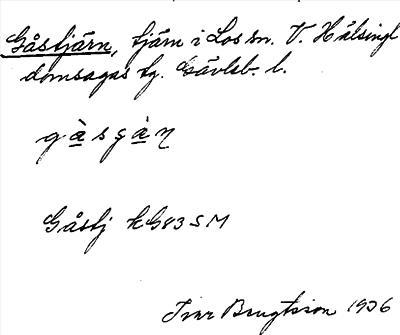 Gåstjärn, tjärn i Los sn. V. Hälsingl
domsagas tg. Gävleb. l.
gàsgàn
Gåstj kG83SM
Ivar Bengtsson 1936